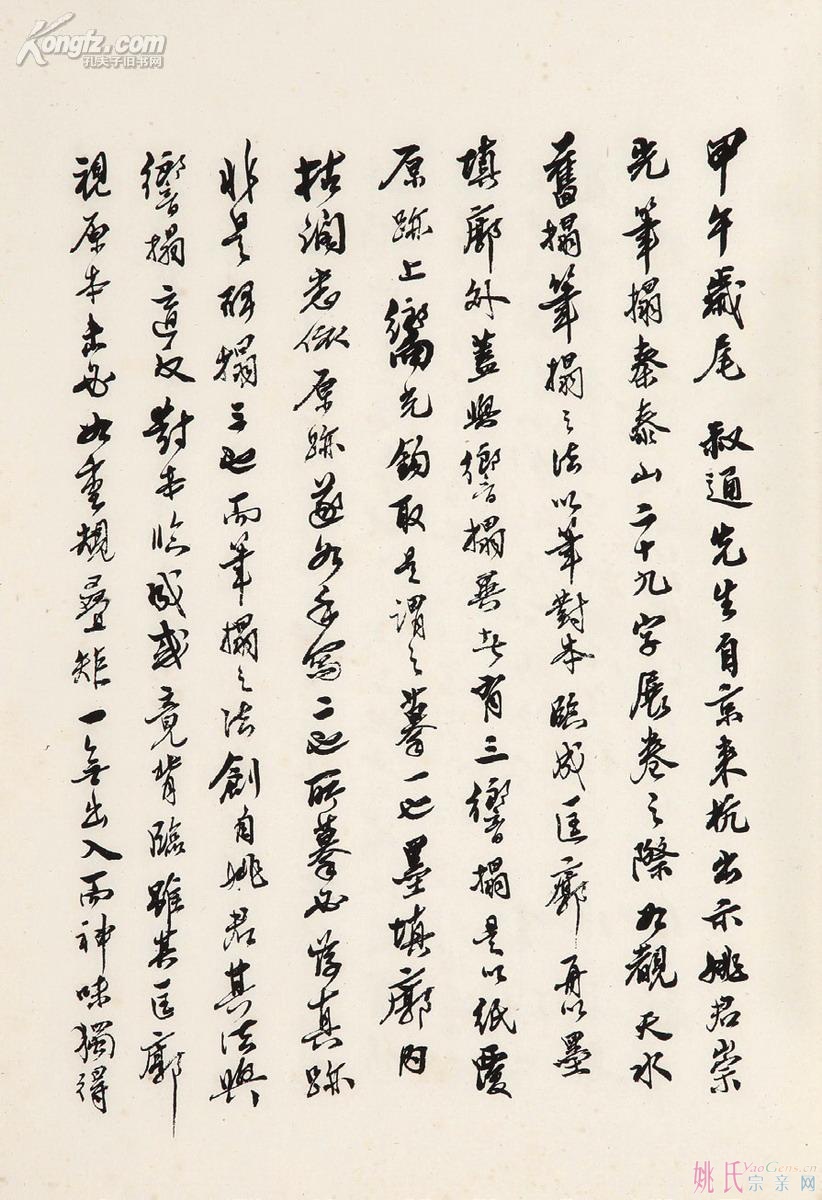 甲午歲尾 叔通先生自京來杭出示姚君崇
光筆搨秦泰山二十九字展卷之際如觀天水
舊搨筆搨之法以筆對本臨成匡廓再以墨
填廓外蓋與嚮搨異者有三嚮搨是以紙覆
原跡上嚮光鉤取是謂之摹一也墨填廓內
枯潤悉依原跡遂如手寫二也所摹必当真跡
非是碑搨三也而筆搨之法創自姚君其法與
嚮搨適反對本臨成或竟背臨雖其匡廓
視原本未必如重規疊矩一無出入而神味獨得
Kongfz.com
孔夫子旧书网
姚氏YaoGens.cn
宗亲网